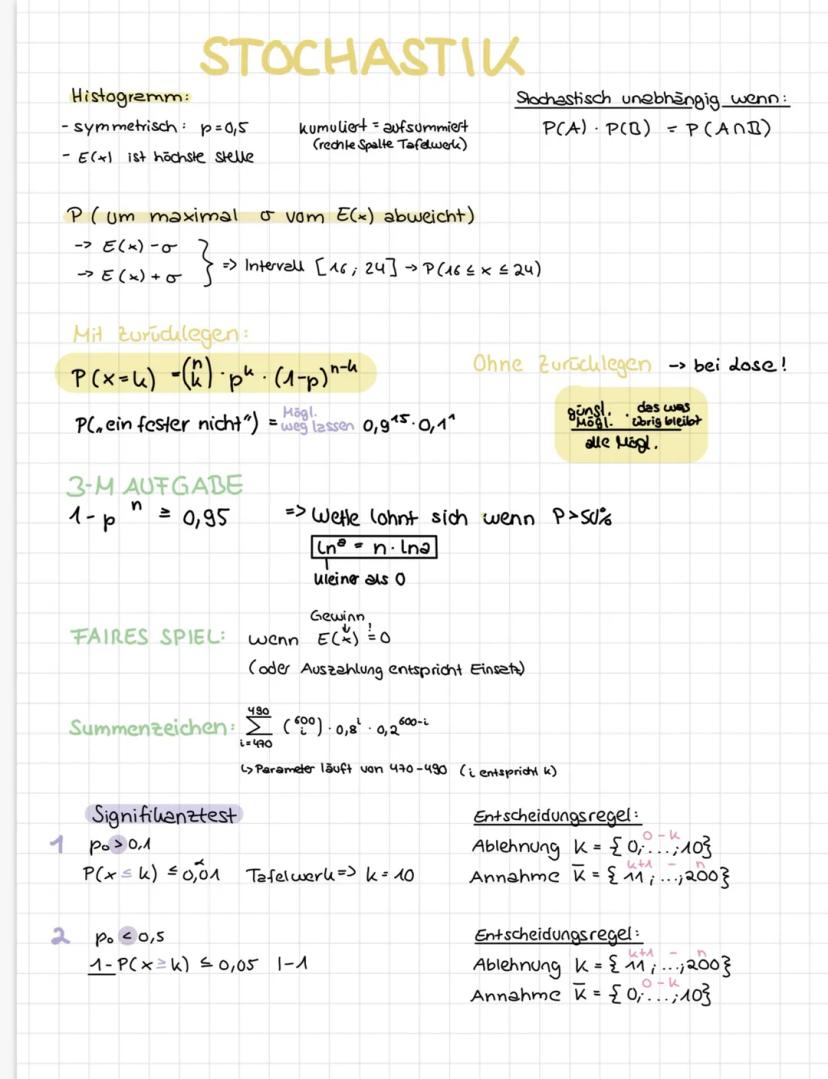 STOCHASTIK
Histogramm:
- symmetrisch: p=0,5
- E(x) ist höchste stelle
kumuliert = aufsummiert
(rechte Spalte Tafelwerk)
Stochastisch unabhängig wenn:
P(A) · P(B) = P(A∩B)
P (um maximal σ vom E(x) abweicht)
-> E(x) - σ
-> E(x) + σ
} => Intervall [16; 24] -> P(16 ≤ x ≤ 24)
Mit Zurücklegen:
P(x=k) = (n k) · p^k · (1-p)^n-k
P(„ein fester nicht“) = Mögl. weg lassen 0,9^15 · 0,1^1
Ohne Zurücklegen -> bei Lose!
günsl. Mögl. · das was übrig bleibt
alle Mögl.
3-M AUFGABE
1-p^n ≥ 0,95
=> Wette lohnt sich wenn P>50%
ln^a = n · lna
kleiner als 0
Gewinn
FAIRES SPIEL: wenn E(x) != 0
(oder Auszahlung entspricht Einsatz)
Summenzeichen: 490 Σ i=470 (600 i) · 0,8^i · 0,2^600-i
↳ Parameter läuft von 470-490 (i entspricht k)
Signifikanztest
1 p₀ > 0,1
P(x ≤ k) ≤ 0,01 α Tafelwerk => k = 10
Entscheidungsregel:
0 - k
Ablehnung K = {0;...;10}
k+1 - n
Annahme K̅ = {11;...;200}
2 p₀ < 0,5
1-P(x ≥ k) ≤ 0,05 |-1
Entscheidungsregel:
k+1 - n
Ablehnung K = {11;...;200}
0 - k
Annahme K̅ = {0;...;10}